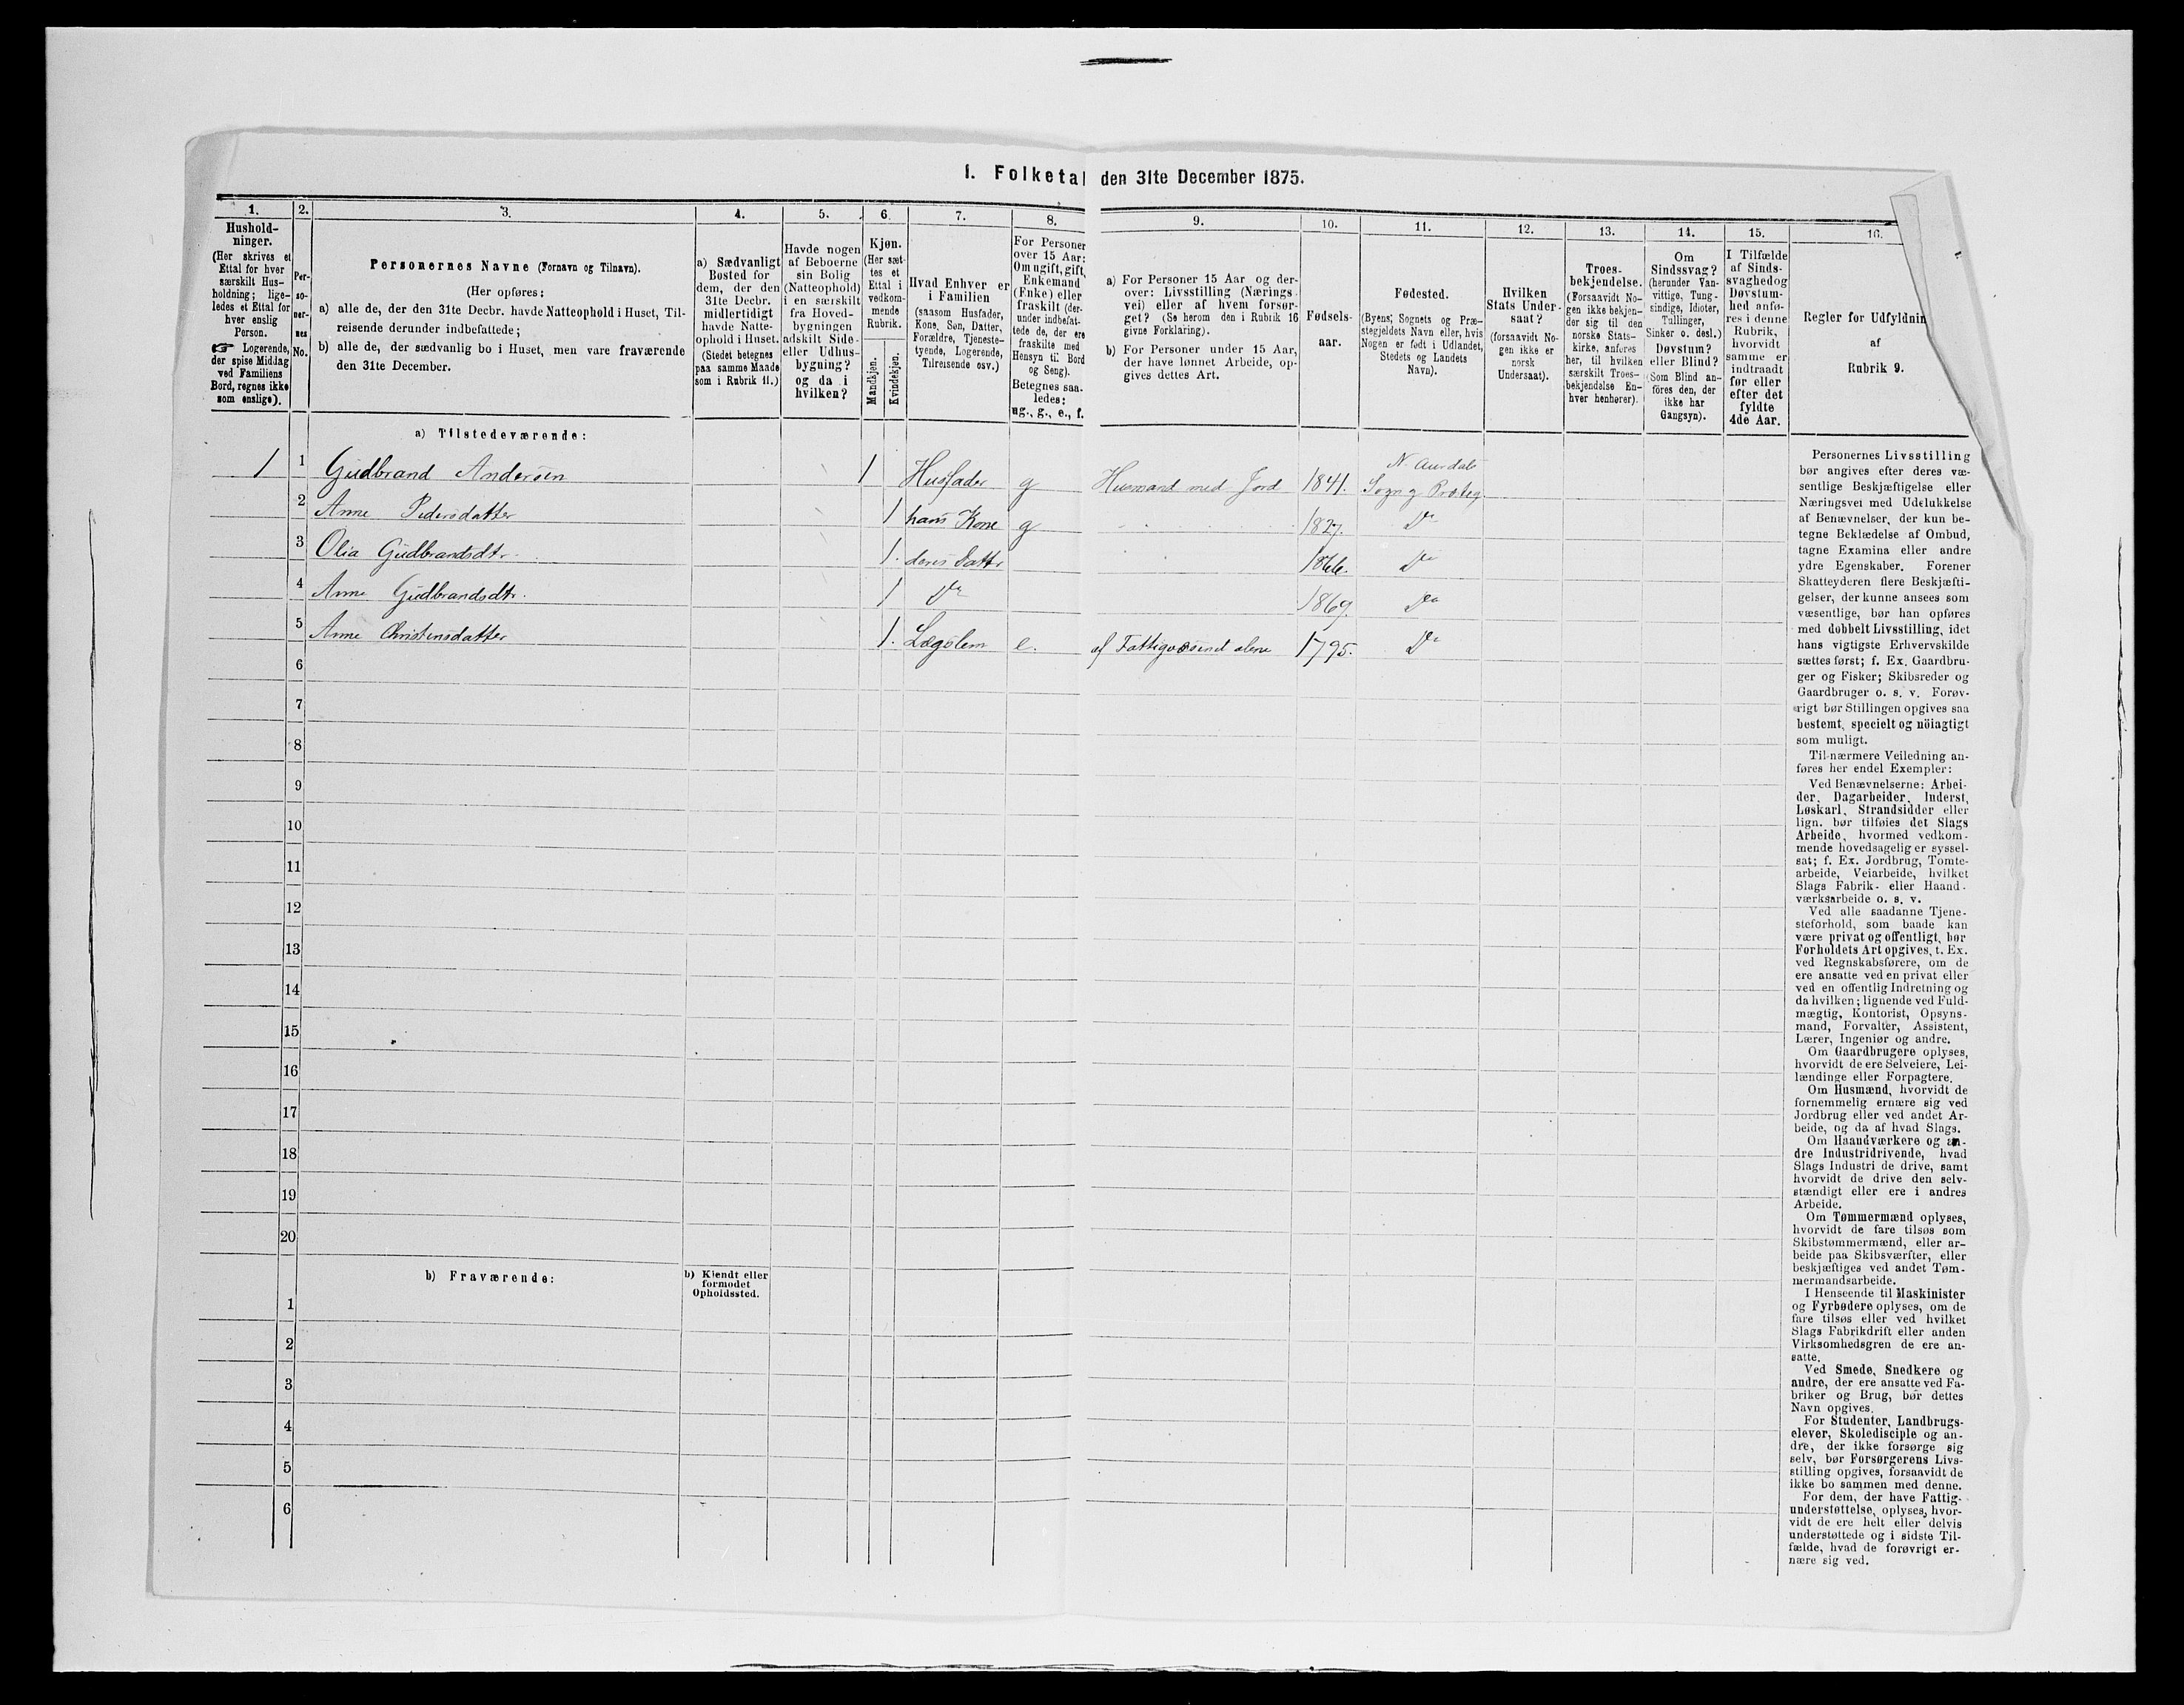 1. Folketal den 31te December 1875.
1.
Hushold-
ninger.
(Her skrives et
Ettal for hver
særskilt Hus-
holdning; lige-
ledes et Ettal for
hver enslig
Person.
☞ Logerende,
der spise Middag
ved Familiens
Bord, regnes ikke
som enslige).
2.
Per-
so-
ner-
nes
No.
3.
Personernes Navne (Fornavn og Tilnavn).
(Her opføres:
a) alle de, der den 31te Decbr. havde Natteophold i Huset, Til-
reisende derunder indbefattede;
b) alle de, der sædvanlig bo i Huset, men vare fraværende
den 31te December.
4.
a) Sædvanligt
Bosted for
dem, der den
31te Decbr.
midlertidigt
havde Natte-
ophold i Huset.
(Stedet betegnes
paa samme Maade
som i Rubrik 11.)
5.
Havde nogen
af Beboerne
sin Bolig
(Natteophold)
i en særskilt
fra Hoved-
bygningen
adskilt Side-
eller Udhus-
bygning?
og da i
hvilken?
6.
Kjøn.
(Her sæt-
tes et
Ettal i
vedkom-
mende
Rubrik.
Mandkjøn.
Kvindekjøn.
7.
Hvad Enhver er
i Familien
(saasom Husfader,
Kone, Søn, Datter,
Forældre, Tjeneste-
tyende, Logerende,
Tilreisende osv.)
8.
For Personer
over 15 Aar:
Om ugift, gift,
Enkemand
(Enke) eller
fraskilt (der-
under indbefat-
tede de, der ere
fraskilte med
Hensyn til Bord
og Seng).
Betegnes saa-
ledes:
ug., g., e., f.
9.
a) For Personer 15 Aar og der-
over: Livsstilling (Nærings-
vei) eller af hvem forsør-
get? (Se herom den i Rubrik 16
givne Forklaring).
b) For Personer under 15 Aar,
der have lønnet Arbeide, op-
gives dettes Art.
10.
Fødsels-
aar.
11.
Fødested.
(Byens, Sognets og Præ-
stegjeldets Navn eller, hvis
Nogen er født i Udlandet,
Stedets og Landets
Navn).
12.
Hvilken
Stats Under-
saat?
(forsaavidt No-
gen ikke er
norsk
Undersaat).
13.
Troes-
bekjendelse.
(Forsaavidt No-
gen ikke bekjen-
der sig til den
norske Stats-
kirke, anføres
her, til hvilken
særskilt Troes-
bekjendelse En-
hver henhører).
14.
Om
Sindssvag?
(herunder Van-
vittige, Tung-
sindige, Idioter,
Tullinger,
Sinker o. desl.)
Døvstum?
eller Blind?
(Som Blind an-
føres den, der
ikke har
Gangsyn).
15.
I Tilfælde
af Sinds-
svaghed og
Døvstum-
hed anfø-
res i denne
Rubrik,
hvorvidt
samme er
indtraadt
før eller
efter det
fyldte
4de Aar.
16.
Regler for Udfyldnin
af
Rubrik 9.
a) Tilstedeværende:
1 1 Gudbrand Andersen 1 Husfader g Husmand med Jord 1841. N. Aurdals Sogn g Præsteg.
2 Anne Pedersdatter 1 hans Kone g 1827. Do
3 Olia Gudbrandsdtr. 1. deres Datter 1866. Do
4 Anne Gudbrandsdtr. 1 Do 1869. Do
5 Anne Christensdatter 1. Lægslem e. af Fattigvæsenet alene 1795. Do
6
7
8
9
10
11
12
13
14
15
16
17
18
19
20
b) Fraværende:
b) Kiendt eller
formodet
Opholdssted.
1
2
3
4
5
6
Personernes Livsstilling
bør angives efter deres væ-
sentlige Beskjæftigelse eller
Næringsvei med Udelukkelse
af Benævnelser, der kun be-
tegne Beklædelse af Ombud,
tagne Examina eller andre
ydre Egenskaber. Forener
Skatteyderen flere Beskjæfti-
gelser, der kunne ansees som
væsentlige, bør han opføres
med dobbelt Livsstilling, idet
hans vigtigste Erhvervskilde
sættes først; f. Ex. Gaardbru-
ger og Fisker; Skibsreder og
Gaardbruger o. s. v. Forøv-
rigt bør Stillingen opgives saa
bestemt, specielt og nöiagtigt
som muligt.
Til nærmere Veiledning an-
føres her endel Exempler:
Ved Benævnelserne: Arbei-
der, Dagarbeider, Inderst,
Løskarl, Strandsidder eller
lign. bør tilføies det Slags
Arbeide, hvormed vedkom-
mende hovedsagelig er syssel-
sat; f. Ex. Jordbrug, Tomte-
arbeide, Veiarbeide, hvilket
Slags Fabrik- eller Haand-
værksarbeide o. s. v.
Ved alle saadanne Tjene-
steforhold, som baade kan
være privat og offentligt, bør
Forholdets Art opgives, t. Ex.
ved Regnskabsførere, om de
ere ansatte ved en privat eller
ved en offentlig Indretning og
da hvilken; lignende ved Fuld-
mægtig, Kontorist, Opsyns-
mand, Forvalter, Assistent,
Lærer, Ingeniør og andre.
Om Gaardbrugere oplyses,
hvorvidt de ere Selveiere, Lei-
lændinge eller Forpagtere.
Om Husmænd, hvorvidt de
fornemmelig ernære sig ved
Jordbrug eller ved andet Ar-
beide, og da af hvad Slags.
Om Haandværkere og an-
dre Industridrivende, hvad
Slags Industri de drive, samt
hvorvidt de drive den selv-
stændigt eller ere i andres
Arbeide.
Om Tømmermænd oplyses,
hvorvidt de fare tilsøs som
Skibstømmermænd, eller ar-
beide paa Skibsværfter, eller
beskjæftiges ved andet Tøm-
mermandsarbeide.
I Henseende til Maskinister
og Fyrbødere oplyses, om de
fare tilsøs eller ved hvilket
Slags Fabrikdrift eller anden
Virksomhedsgren de ere an-
satte.
Ved Smede, Snedkere og
andre, der ere ansatte ved Fa-
briker og Brug, bør dettes
Navn opgives.
For Studenter, Landbrugs-
elever, Skoledisciple og an-
dre, der ikke forsørge sig
selv, bør Forsørgerens Livs-
stilling opgives, forsaavidt de
ikke bo sammen med denne.
For dem, der have Fattig-
understøttelse, oplyses, hvor-
vidt de ere helt eller delvis
understøttede og i sidste Til-
fælde, hvad de forøvrigt er-
nære sig ved.